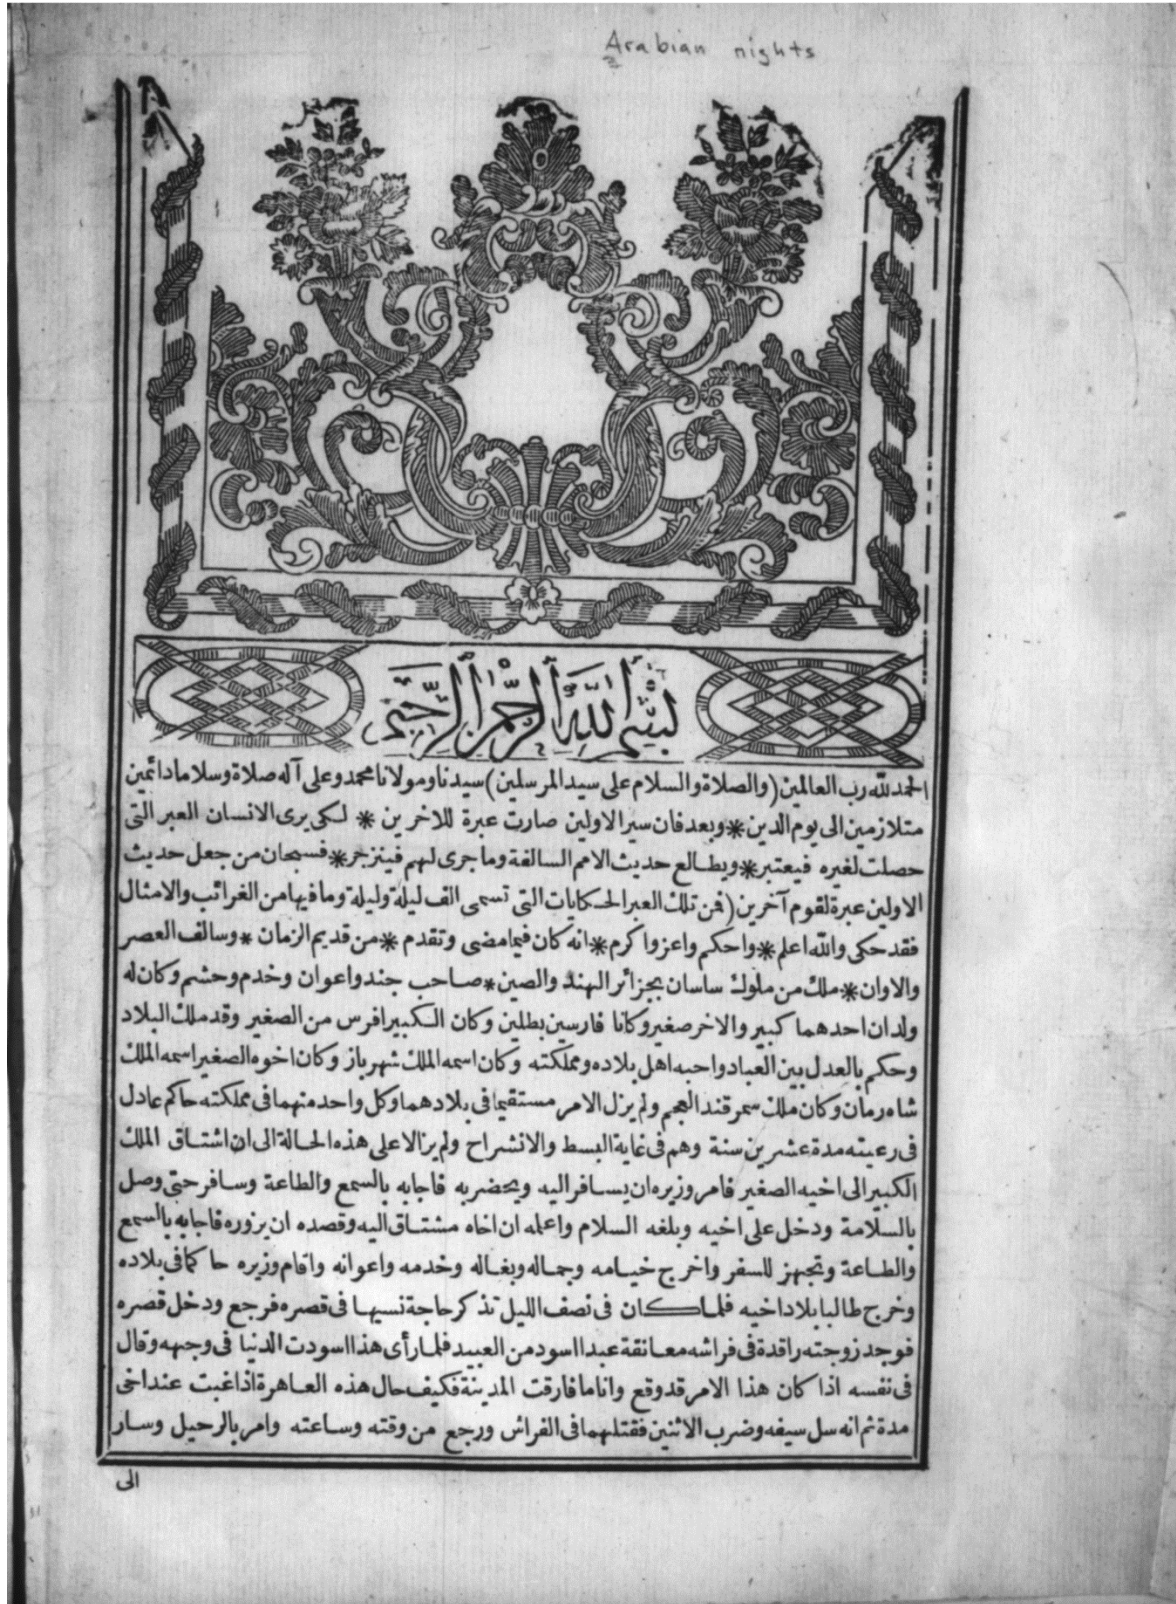 Arabian nights
بسم الله الرحمن الرحيم
الحمد لله رب العالمين (والصلاة والسلام على سيد المرسلين) سيدنا ومولانا محمد وعلى آله صلاة وسلاما دائمين
متلازمين الى يوم الدين * وبعد فان سير الاولين صارت عبرة للاخرين * لكى يرى الانسان العبر التى
حصلت لغيره فيعتبر * ويطالع حديث الامم السالفة وما جرى لهم فينزجر * فسبحان من جعل حديث
الاولين عبرة لقوم آخرين (فمن تلك العبر الحكايات التى تسمى الف ليلة وليلة وما فيها من الغرائب والامثال
فقد حكى والله اعلم * واحكم واعز واكرم * انه كان فيما مضى وتقدم * من قديم الزمان * وسالف العصر
والاوان * ملك من ملوك ساسان بجزائر الهند والصين * صاحب جند واعوان وخدم وحشم وكان له
ولدان احدهما كبير والاخر صغير وكانا فارسين بطلين وكان الكبير افرس من الصغير وقد ملك البلاد
وحكم بالعدل بين العباد واحبه اهل بلاده ومملكته وكان اسمه الملك شهرباز وكان اخوه الصغير اسمه الملك
شاه رمان وكان ملك سمرقند العجم ولم يزل الامر مستقيما فى بلادهما وكل واحد منهما فى مملكته حاكم عادل
فى رعيته مدة عشرين سنة وهم فى غاية البسط والانشراح ولم يزالا على هذه الحالة الى ان اشتاق الملك
الكبير الى اخيه الصغير فامر وزيره ان يسافر اليه ويحضر به فاجابه بالسمع والطاعة وسافر حتى وصل
بالسلامة ودخل على اخيه وبلغه السلام واعلمه ان اخاه مشتاق اليه وقصده ان يزوره فاجابه بالسمع
والطاعة وتجهز للسفر واخرج خيامه وجماله وبغاله وخدمه واعوانه واقام وزيره حاكما فى بلاده
وخرج طالبا بلاد اخيه فلما كان فى نصف الليل تذكر حاجة نسيها فى قصره فرجع ودخل قصره
فوجد زوجته راقدة فى فراشه معانقة عبدا اسود من العبيد فلما رأى هذا اسودت الدنيا فى وجهه وقال
فى نفسه اذا كان هذا الامر قد وقع وانا ما فارقت المدينة فكيف حال هذه العاهرة اذا غبت عند اخى
مدة ثم انه سل سيفه وضرب الاثنين فقتلهما فى الفراش ورجع من وقته وساعته وامر بالرحيل وسار
الى